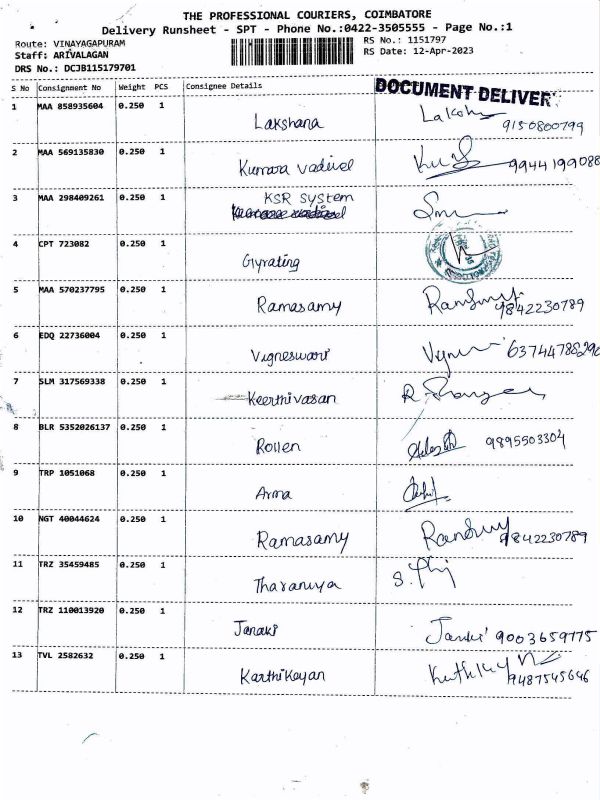 THE PROFESSIONAL COURIERS, COIMBATORE
Delivery Runsheet - SPT - Phone No.:0422-3505555 - Page No.:1
Route: VINAYAGAPURAM
Staff: ARIVALAGAN
DRS No.: DCJB115179701
RS No.: 1151797
RS Date: 12-Apr-2023
S No Consignment No Weight PCS Consignee Details
DOCUMENT DELIVER
1 MAA 858935604 0.250 1 Lakshana 9150800799
2 MAA 569135830 0.250 1 Kumara vadivel 9944199088
3 MAA 298409261 0.250 1 KSR System
4 CPT 723082 0.250 1 Gyrating
5 MAA 570237795 0.250 1 Ramasamy 9842230789
6 EDQ 22736004 0.250 1 Vigneswari
7 SLM 317569338 0.250 1 Keerthivasan
8 BLR 5352026137 0.250 1 Rollen 9895503304
9 TRP 1051068 0.250 1 Arma
10 NGT 40044624 0.250 1 Ramasamy 9842230789
11 TRZ 35459485 0.250 1
12 TRZ 110013920 0.250 1 Janaki 9003659775
13 TVL 2582632 0.250 1 Karthikeyan 9487545646